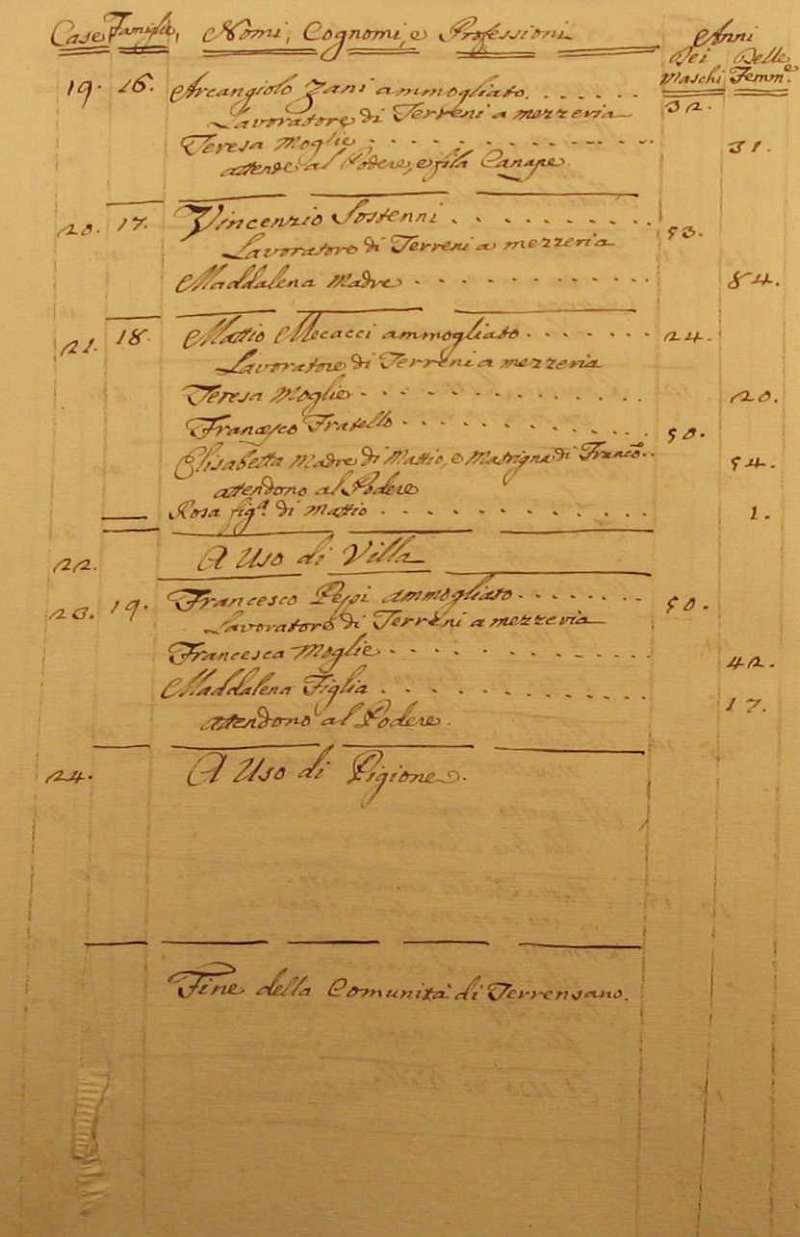 Case Famiglie, Nomi, Cognomi, e Professioni Anni
Dei Delle
Maschi Femm.e
19. 16. Arcangiolo Zani ammogliato 32.
Lavoratore di Terreni a mezzeria
Teresa Moglie 31.
attende al Podere, e fila Canape
20. 17. Vincenzio Sostenni 50.
Lavoratore di Terreni a mezzeria
Maddalena Madre 84.
21. 18. Mattio Mecacci ammogliato 24.
Lavoratore di Terreni a mezzeria
Teresa Moglie 20.
Francesco Fratello 50.
Elisabetta Madre di Mattio, e Matrigna di Franc.o 54.
attendono al Podere
Rosa fig.a di Mattio 1.
22. A Uso di Villa
23. 19. Francesco ammogliato 50.
Lavoratore di Terreni a mezzeria
Francesca Moglie 42.
Maddalena Figlia 17.
attendono al Podere.
24. A Uso di Pigione.
Fine della Comunità di Terrensano.